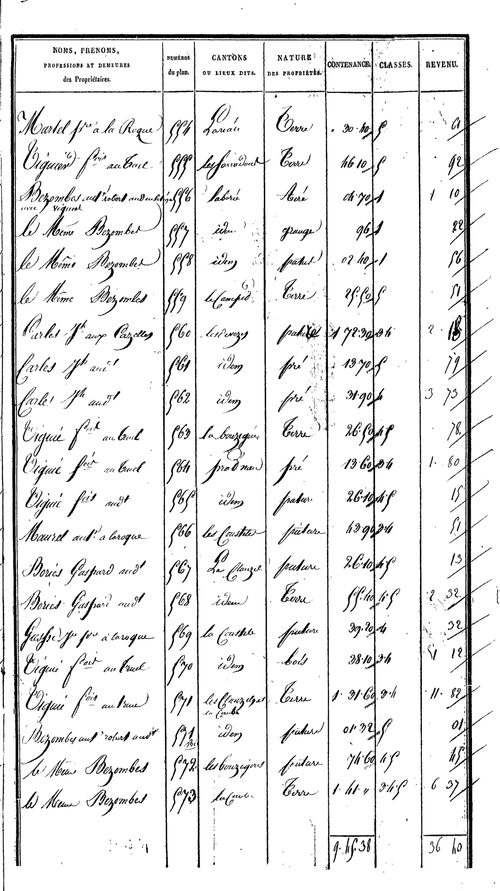 NOMS, PRENOMS, PROFESSIONS ET DEMEURES des Propriétaires. NUMÉROS du plan. CANTONS OU LIEUX DITS. NATURE DES PROPRIÉTÉS. CONTENANCE. CLASSES. REVENU.
Martel a la Roque 554 Terre 30 40 5 91
Viguier f.ois au truel 555 Terre 46 10 5 92
Bezombes ant.e robert 556 laborie 04 70 1 1 10
le Même Bezombes 557 idem grange 96 1 22
le Même Bezombes 558 idem patus 02 40 1 56
le Même Bezombes 559 Terre 25 50 5 51
Carles J.h aux Cazelles 560 pature 1 72 30 3 4 2 18
Carles J.h aud.t 561 idem pré 13 70 5 79
Carles J.h aud.t 562 idem pré 31 90 4 3 73
Viguié f.ois au truel 563 la bouzigue Terre 26 50 4 5 78
Viguié f.ois au truel 564 prad mau pré 13 60 3 4 1 80
Viguié f.ois aud.t 565 idem pature 26 10 4 5 15
Maurel ant.e a laroque 566 les Coustils pature 43 90 3 4 51
Bories Gaspard aud.t 567 La Clauzel pature 26 10 4 5 13
Bories Gaspard aud.t 568 idem Terre 55 40 4 5 2 32
a laroque 569 la Coustele pature 39 20 4 32
Viguié f.ois au truel 570 idem bois 38 10 3 4 1 12
Viguié f.ois au truel 571 Terre 1 31 60 3 4 11 82
Bezombes ant.e robert aud.t 571 bis idem pature 01 32 5 01
le Meme Bezombes 572 les bouzigues pature 74 60 4 5 45
le Meme Bezombes 573 la Combe Terre 1 41 " 3 4 5 6 37
9 45 38 36 40